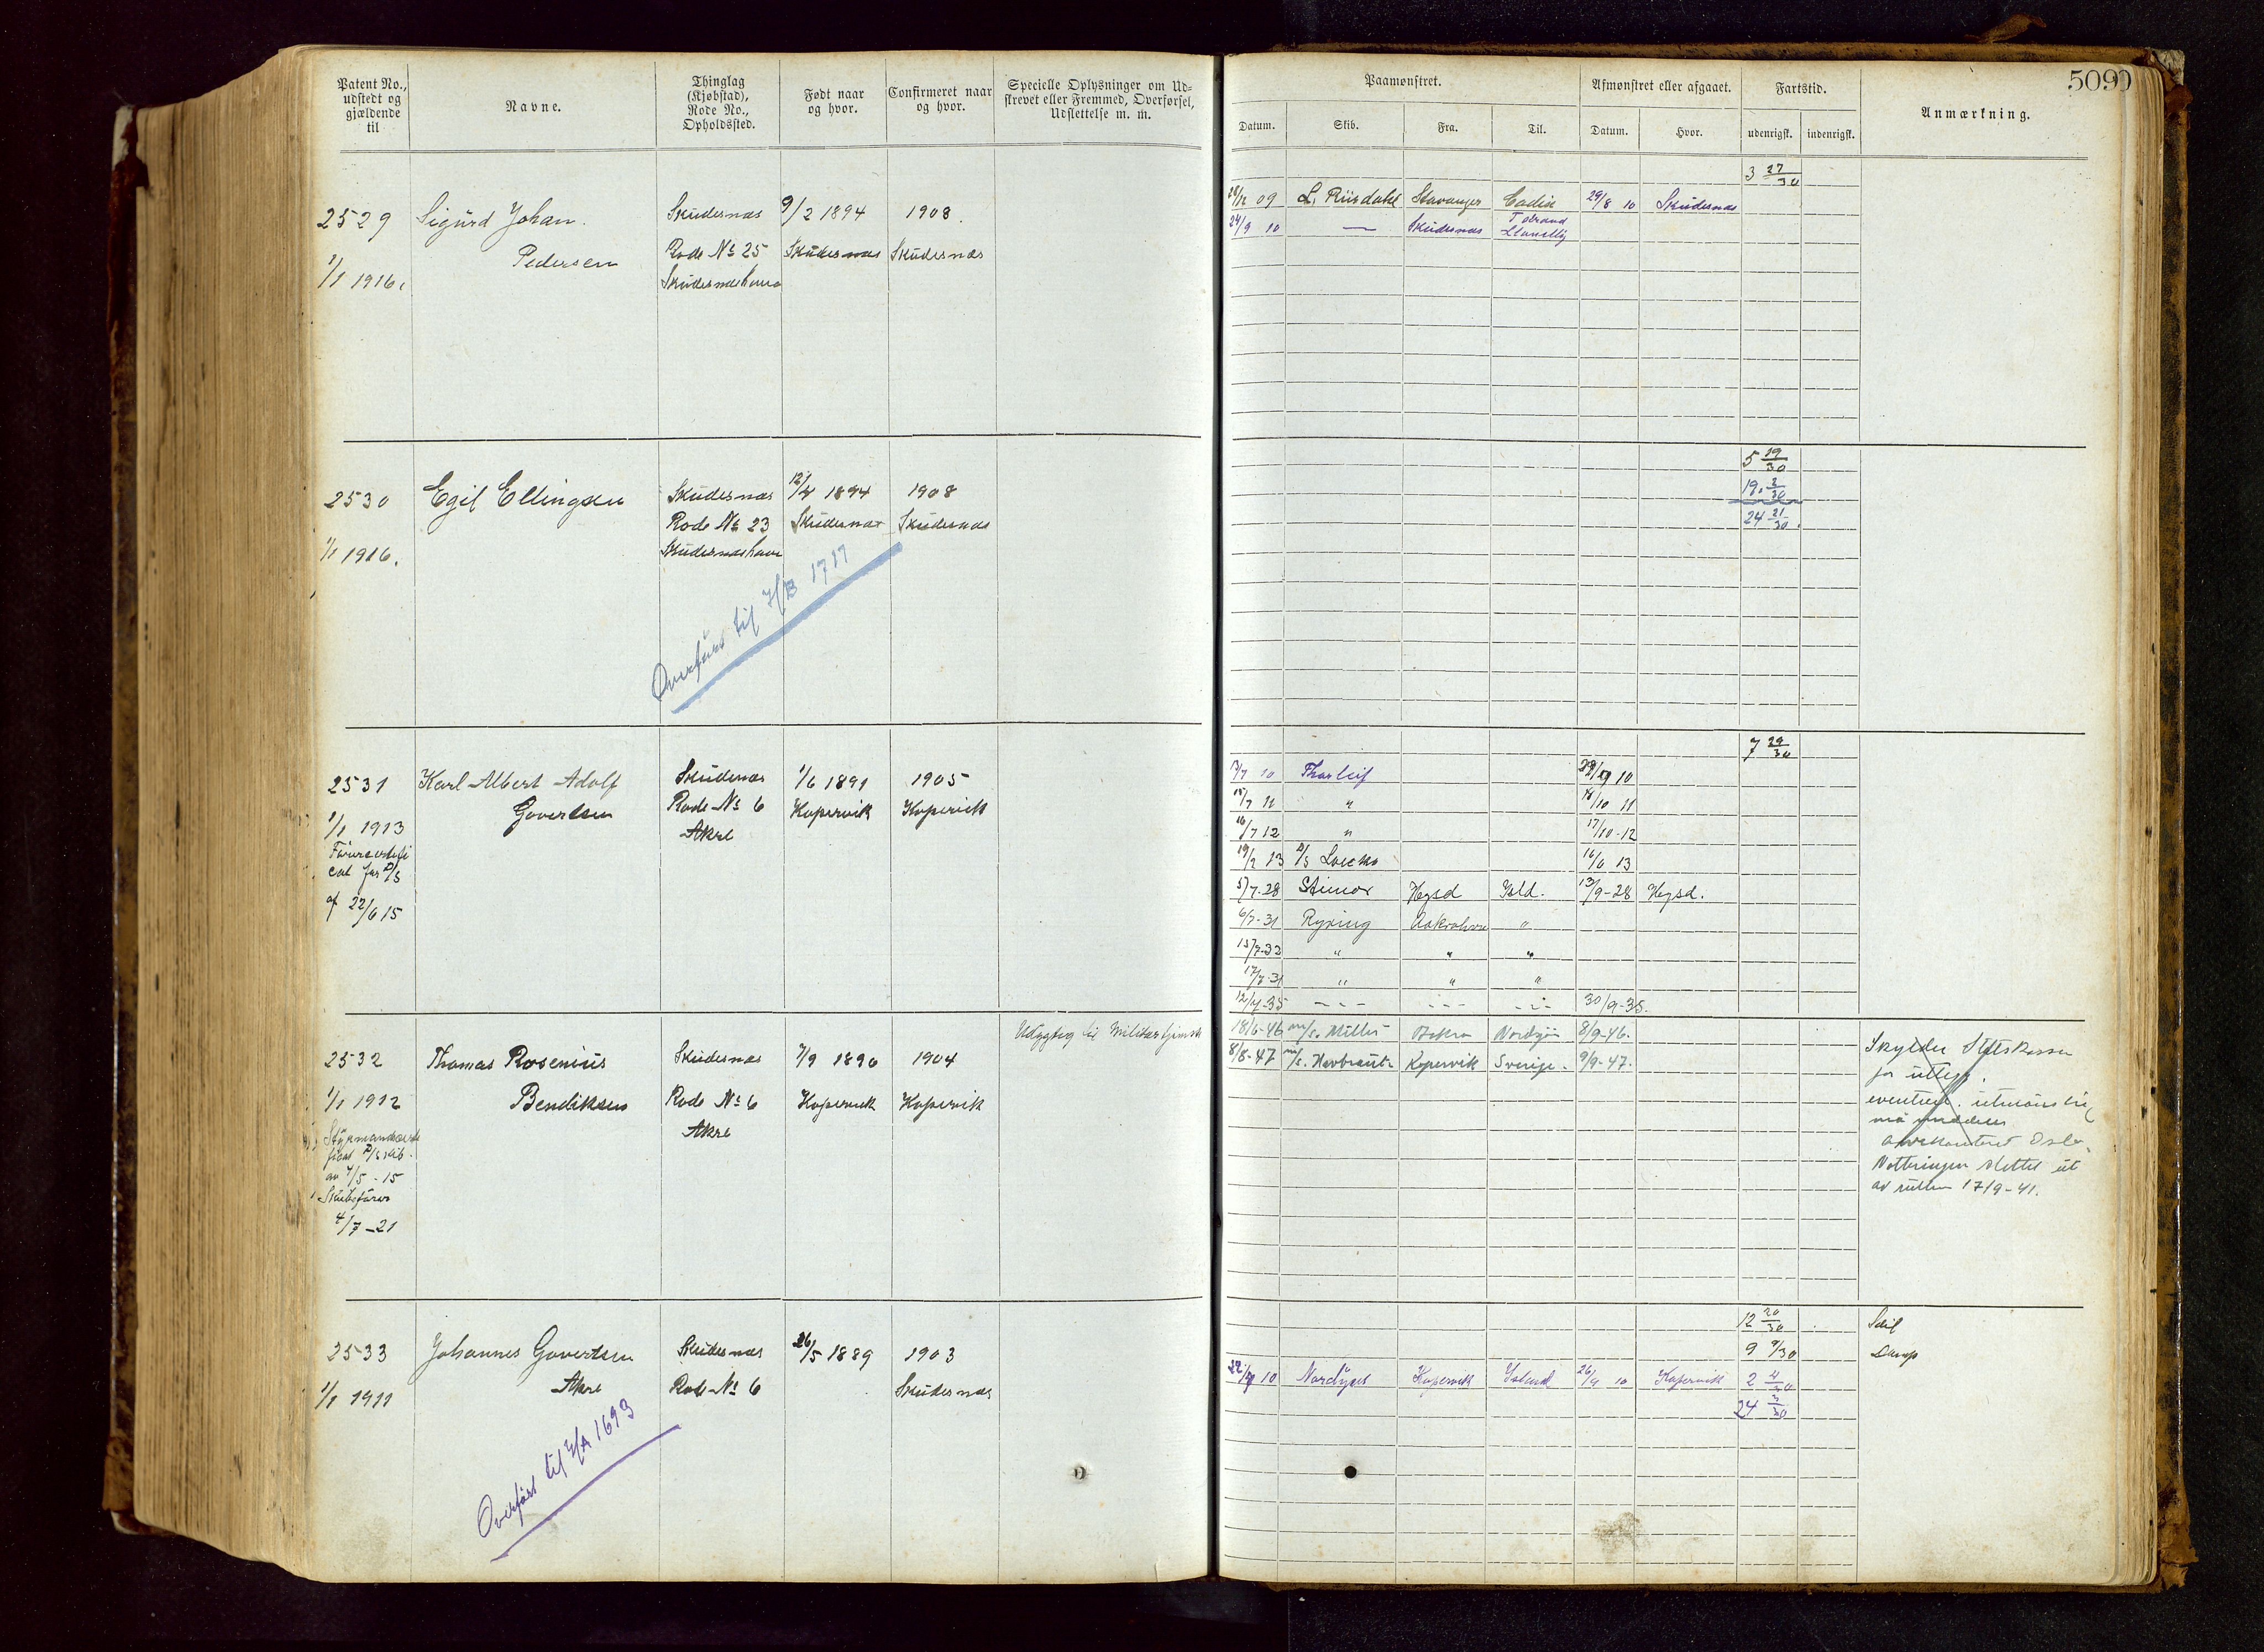 Patent No., udstedt og gjældende til
Navne.
Thinglag (Kjøbstad), Rode No., Opholdssted.
Født naar og hvor.
Confirmeret naar og hvor.
Specielle Oplysninger om Udskrevet eller Fremmed, Overførsel, Udslettelse m. m.
Paamønstret.
Afmønstret eller afgaaet.
Fartstid.
Anmærkning.
5090
Datum.
Skib.
Fra.
Til.
Datum.
Hvor.
udenrigsk.
indenrigsk.
3 27/30
2529 Sigurd Johan Skudesnæs 9/2 1894 1908.
Pedersen Rode No 25 Skudesnæs Skudesnæs
1/1 1916. Skudesnæshavn
09 L. Riisdahl Stavanger Cadix 29/8 10 Skudesnæs
24/9 10 — Skudesnæs Llanelly
5 19/30
19. 2/30
24 21/30.
2530 Egil Ellingsen Skudesnæs 12/4 1894 1908
Rode No 23 Skudesnæs Skudesnæs
1/1 1916. Skudesnæshavn
Overført til H/B 1717
7 29/30
2531 Karl Albert Adolf Skudesnæs 1/6 1891 1905
Govertsen Rode No 6 Kopervik Kopervik
1/1 1913 Akre
for D/S
af 22/6 15
13/7 10 Thorleif 29/9 10
15/7 11 " 18/10 11
16/7 12 " 17/10-12
19/2 13 D/S 16/6 13
5/7-28 Stimor Hgsd Isld. 13/9-28 Hgsd.
6/7-31 Ryving "
15/7-33 " " "
17/7-31 " " "
12/7-35 --- --- --- 30/9-35.
2532 Thomas Rosenius Skudesnæs 7/9 1890 1904
Bendiksen Rode No 6 Kopervik Kopervik
1/1 1912 Akre
av 7/5-15
Skibsfører
4/7-21
til Militær
18/6-46 m/s. Akra Nordsjøen 8/9-46.
8/8-47 m/s. Kopervik Sverige. 9/9-47.
Skylder Statskassen
for utlegg.
Oslo.
Notteringen slettet ut
av rullen 17/9-41.
2533 Johannes Govertsen Skudesnæs 26/5 1889 1903
Akre Rode No 6 Skudesnæs
1/1 1911
Overført til H/A 1693
12 20/30 Seil
9 9/30 Damp
22/7 10 Kopervik Island 26/9 10 Kopervik 2 4/30
24 3/30